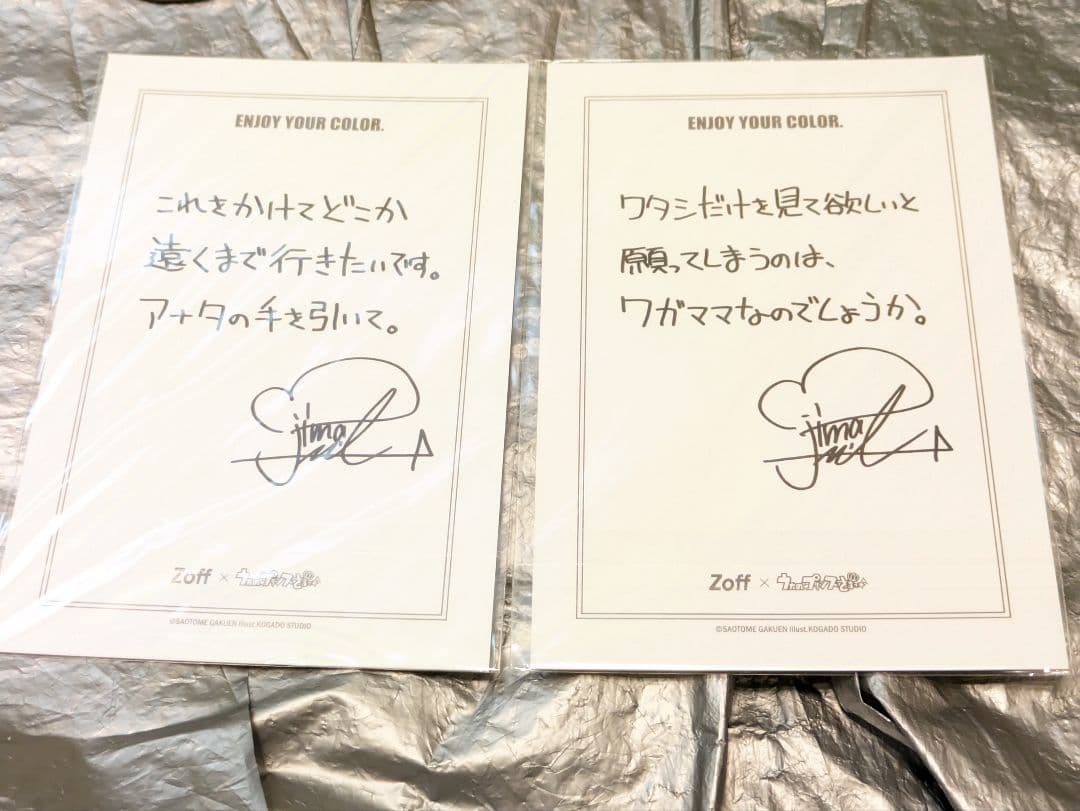 ENJOY YOUR COLOR.
これをかけてどこか
遠くまで行きたいです。
アナタの手を引いて。
Zoff × うたの☆プリンスさまっ♪
©SAOTOME GAKUEN Illust.KOGADO STUDIO
ENJOY YOUR COLOR.
ワタシだけを見て欲しいと
願ってしまうのは、
ワガママなのでしょうか。
Zoff × うたの☆プリンスさまっ♪
©SAOTOME GAKUEN Illust.KOGADO STUDIO